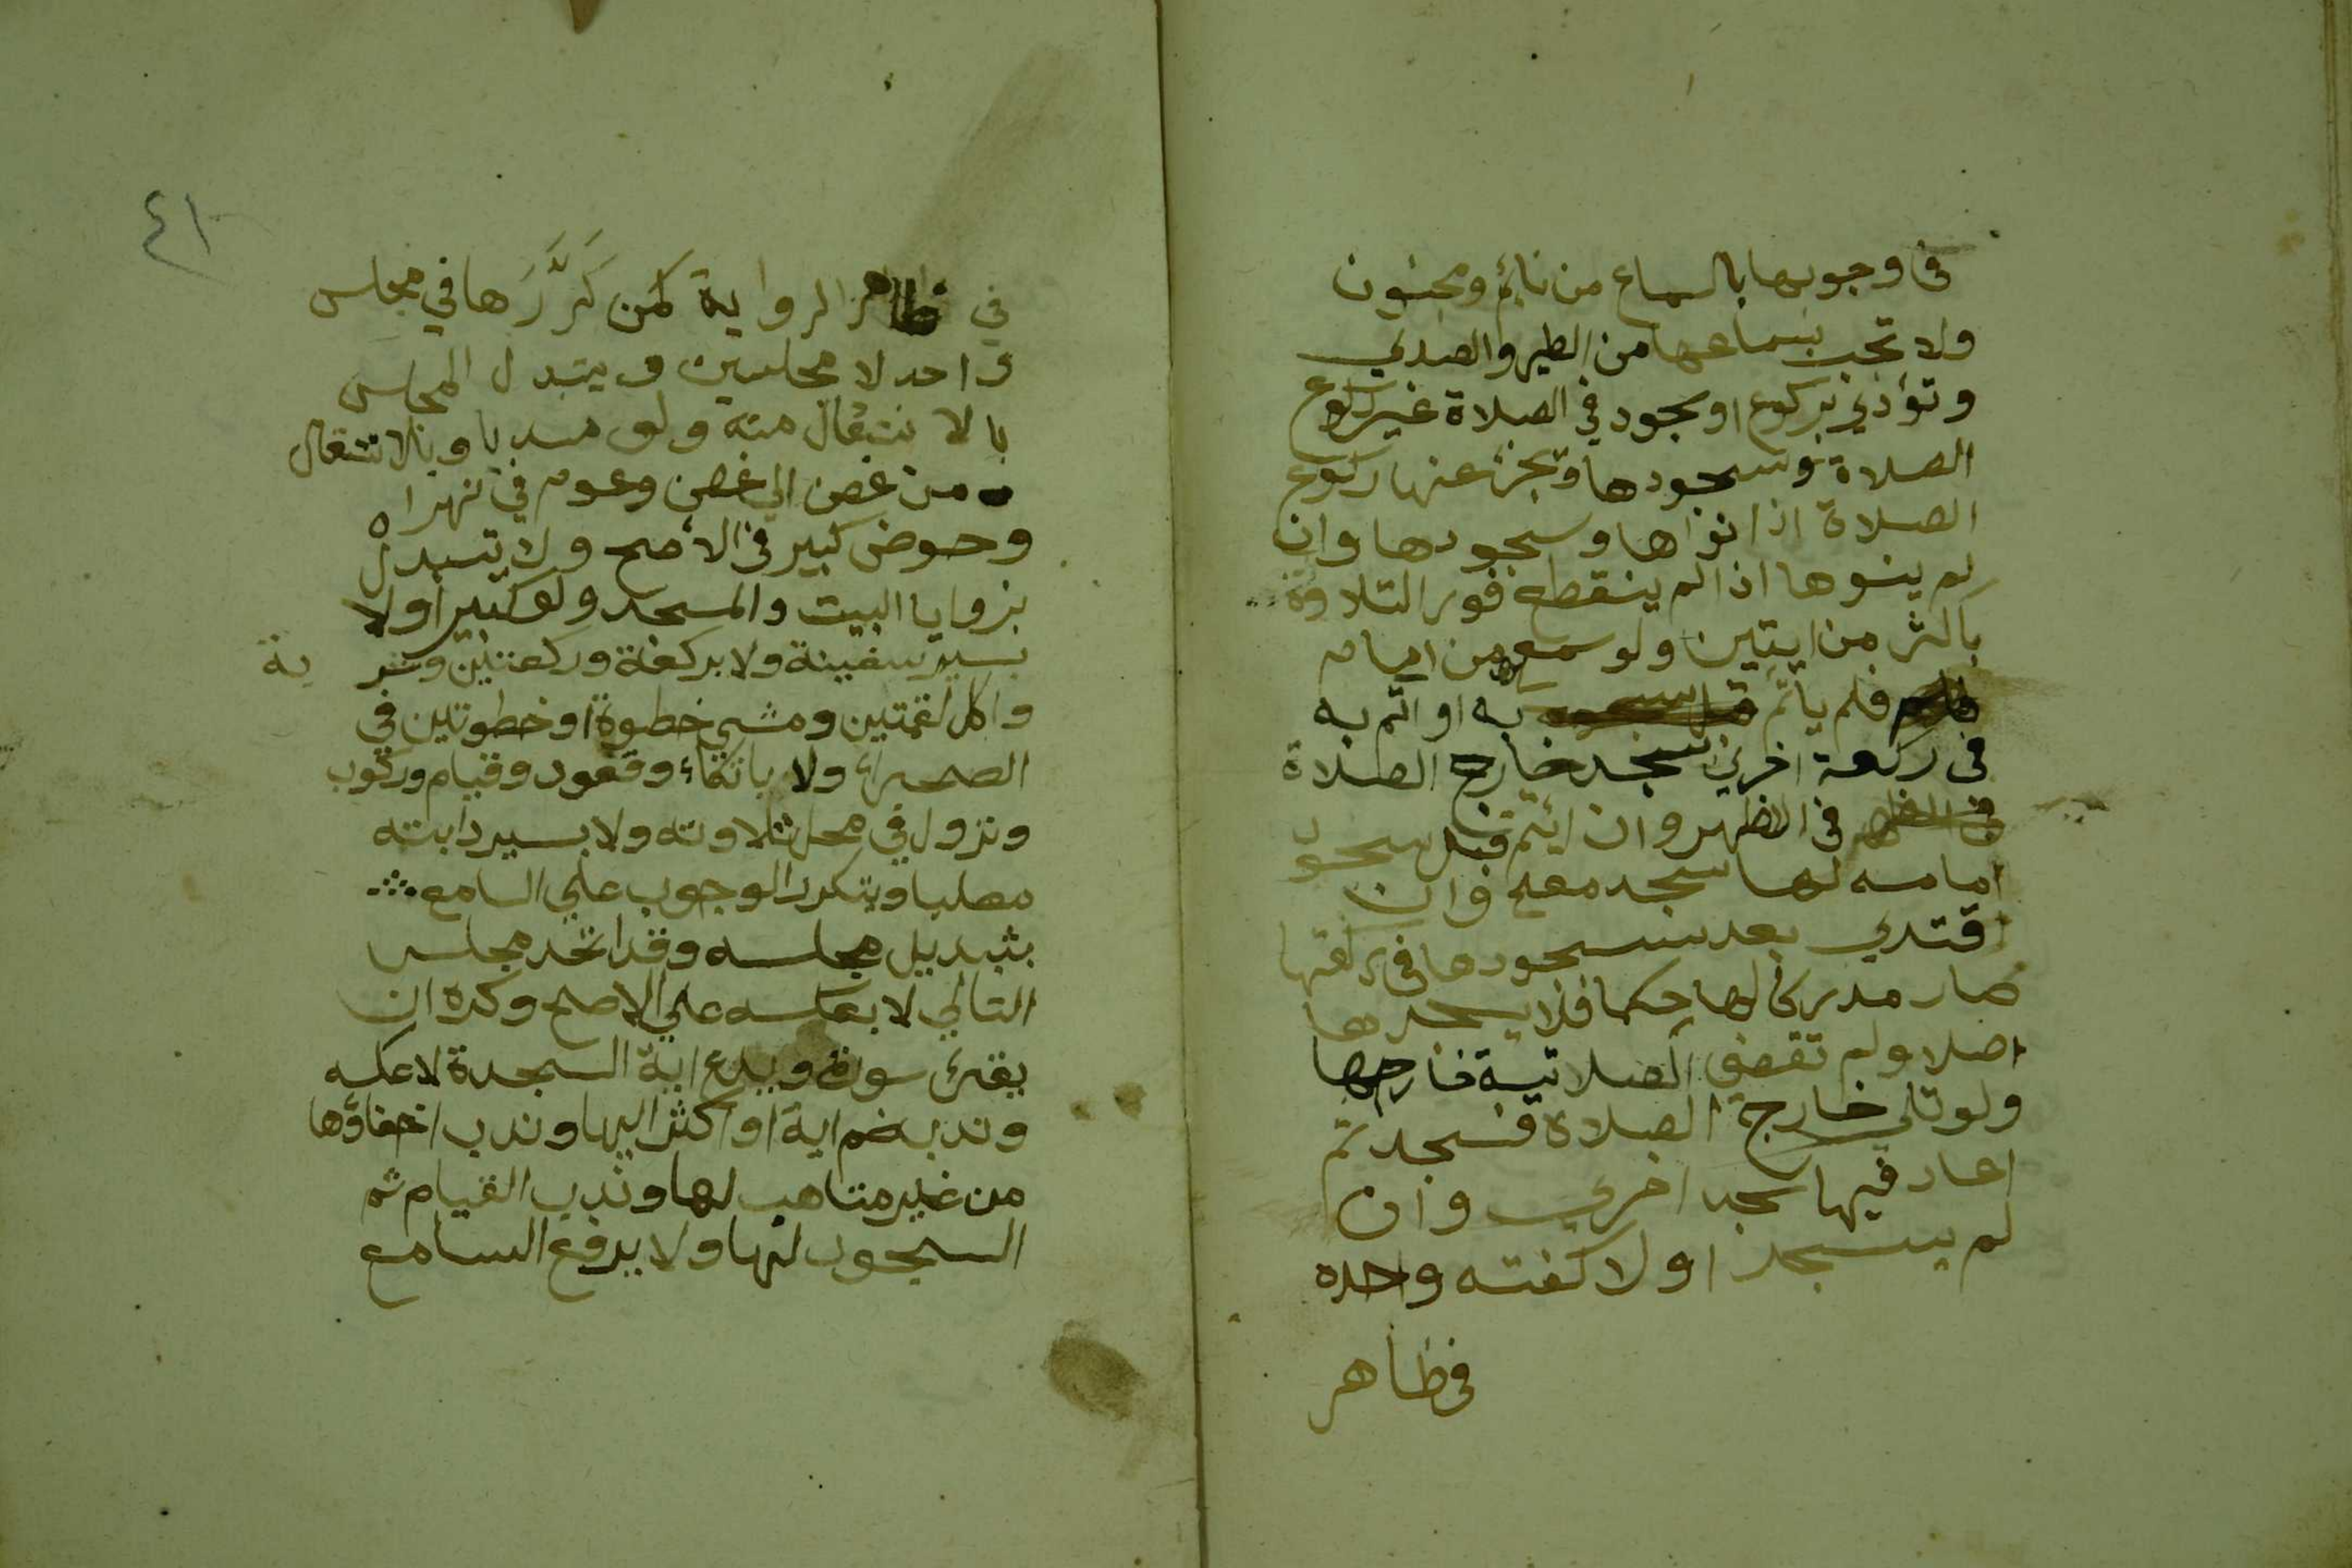 فى وجوبها بالسماع من نائم ومجنون
ولا تجب بسماعها من الطير والصدي
وتؤدي بركوع او سجود في الصلاة غير ركوع
الصلاة وسجودها وتجزئ عنها ركوع
الصلاة اذا نواها وسجودها وان
لم ينوها اذا لم ينقطع فور التلاوة
باكثر من ايتين ولو سمع من امام
فلم ياتم به او ائتم به
فى ركعة اخري سجد خارج الصلاة
فى الاظهر وان ائتم قبل سجود
امامه لها سجد معه وان
اقتدي بعد سجودها فى ركعتها
صار مدركا لها حكما فلا يسجدها
اصلا ولم تقضي الصلاتية خارجها
ولو تلي خارج الصلاة فسجد ثم
اعاد فيها سجد اخري وان
لم يسجد اولا كفته واحده
فى ظاهر
٤١
في ظاهر الرواية كمن كَرَّرَها في مجلس
واحد لا مجلسين ويتبدل المجلس
بالانتقال منه ولو مسديا وبالانتقال
من غصن الي غصن وعوم في نهر ا
وحوض كبير فى الاصح ولا يتبدل
بزوايا البيت والمسجد ولو كبيرا ولا
بسير سفينة ولا بركعة وركعتين وشربة
واكل لقمتين ومشي خطوة او خطوتين في
الصحراء ولا باتكاء وقعود وقيام وركوب
ونزول في محل تلاوته ولا بسير دابته
مصليا ويتكرر الوجوب علي السامع
بتبديل مجلسه وقد اتحد مجلس
التالي لا بعكسه علي الاصح وكره ان
يقرئ سورة ويدع اية السجدة لا عكسه
وندب ضم اية او اكثر اليها وندب اخفاؤها
من غير متاهب لها وندب القيام ثم
السجود لها ولا يرفع السامع